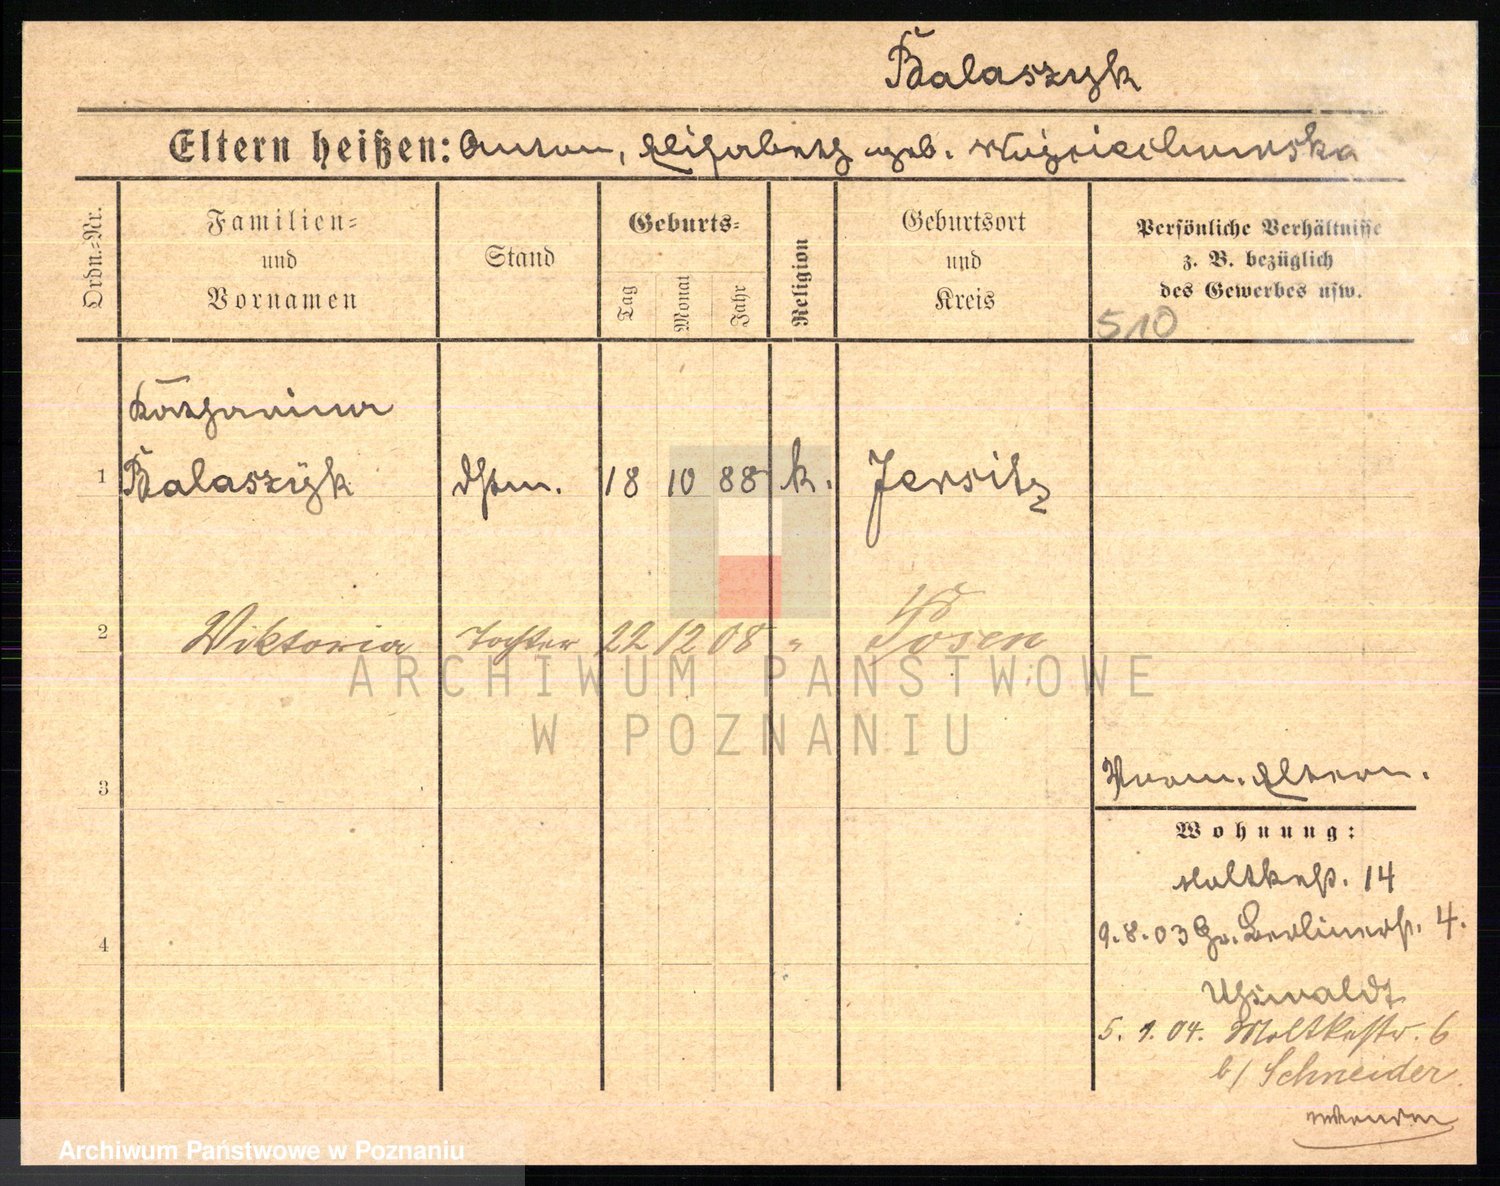 Balaszyk
Eltern heißen: Anton, Elisabeth geb. Wojciechowska
Ordn.=Nr.
Familien=
und
Vornamen
Stand
Geburts=
Tag
Monat
Jahr
Religion
Geburtsort
und
Kreis
Persönliche Verhältnisse
z. B. bezüglich
des Gewerbes usw.
510
Katharina
1 Balaszyk Dstm. 18 10 88 k. Jersitz
2 Viktoria Tochter 22 12 08 " Posen
ARCHIWUM PAŃSTWOWE
W POZNANIU
3
Eltern.
Wohnung:
Moltkestr. 14
9.8.03 Gr. Berlinerstr. 4.
4
5. 1. 04. Moltkestr. 6
b/ Schneider
Archiwum Państwowe w Poznaniu